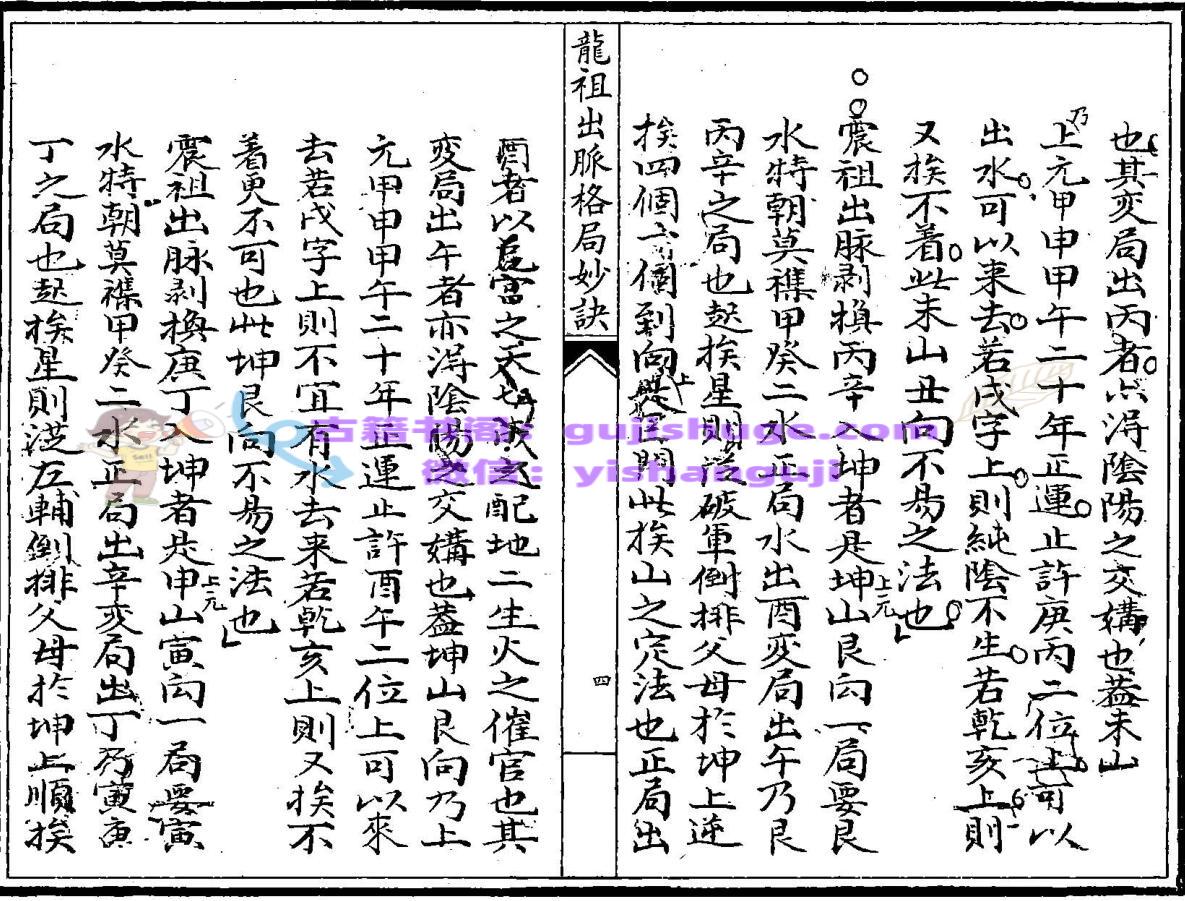 也其变局出丙者亦淂陰陽之交媾也葢未山
乃上元甲申甲午二十年正運止許庚丙二位上可以
出水可以来去若戌字上則純陰不生若乾亥上則
又挨不着此未山丑向不易之法也
震祖出脉剥換丙辛入坤者是坤山艮向一局要艮
上元
水特朝莫襍甲癸二水正局水出酉变局出午乃艮
丙辛之局也起挨星則從破軍倒排父母於坤上逆
挨四個一個到向上是巨門此挨山之定法也正局出
龍祖出脈格局妙訣
四
酉者以之天之配地二生火之催官也其
变局出午者亦淂陰陽之交媾也葢坤山艮向乃上
元甲申甲午二十年正運止許酉午二位上可以來
去若戌字上則不宜有水去来若乾亥上則又挨不
着更不可也此坤艮向不易之法也
上元
震祖出脉剥換庚丁入坤者是申山寅向一局要寅
水特朝莫襍甲癸二水正局出辛变局出丁乃寅庚
丁之局也起挨星則從左輔倒排父母於坤上順挨
古籍书阁: gujishuge.com
微信: yishanguji